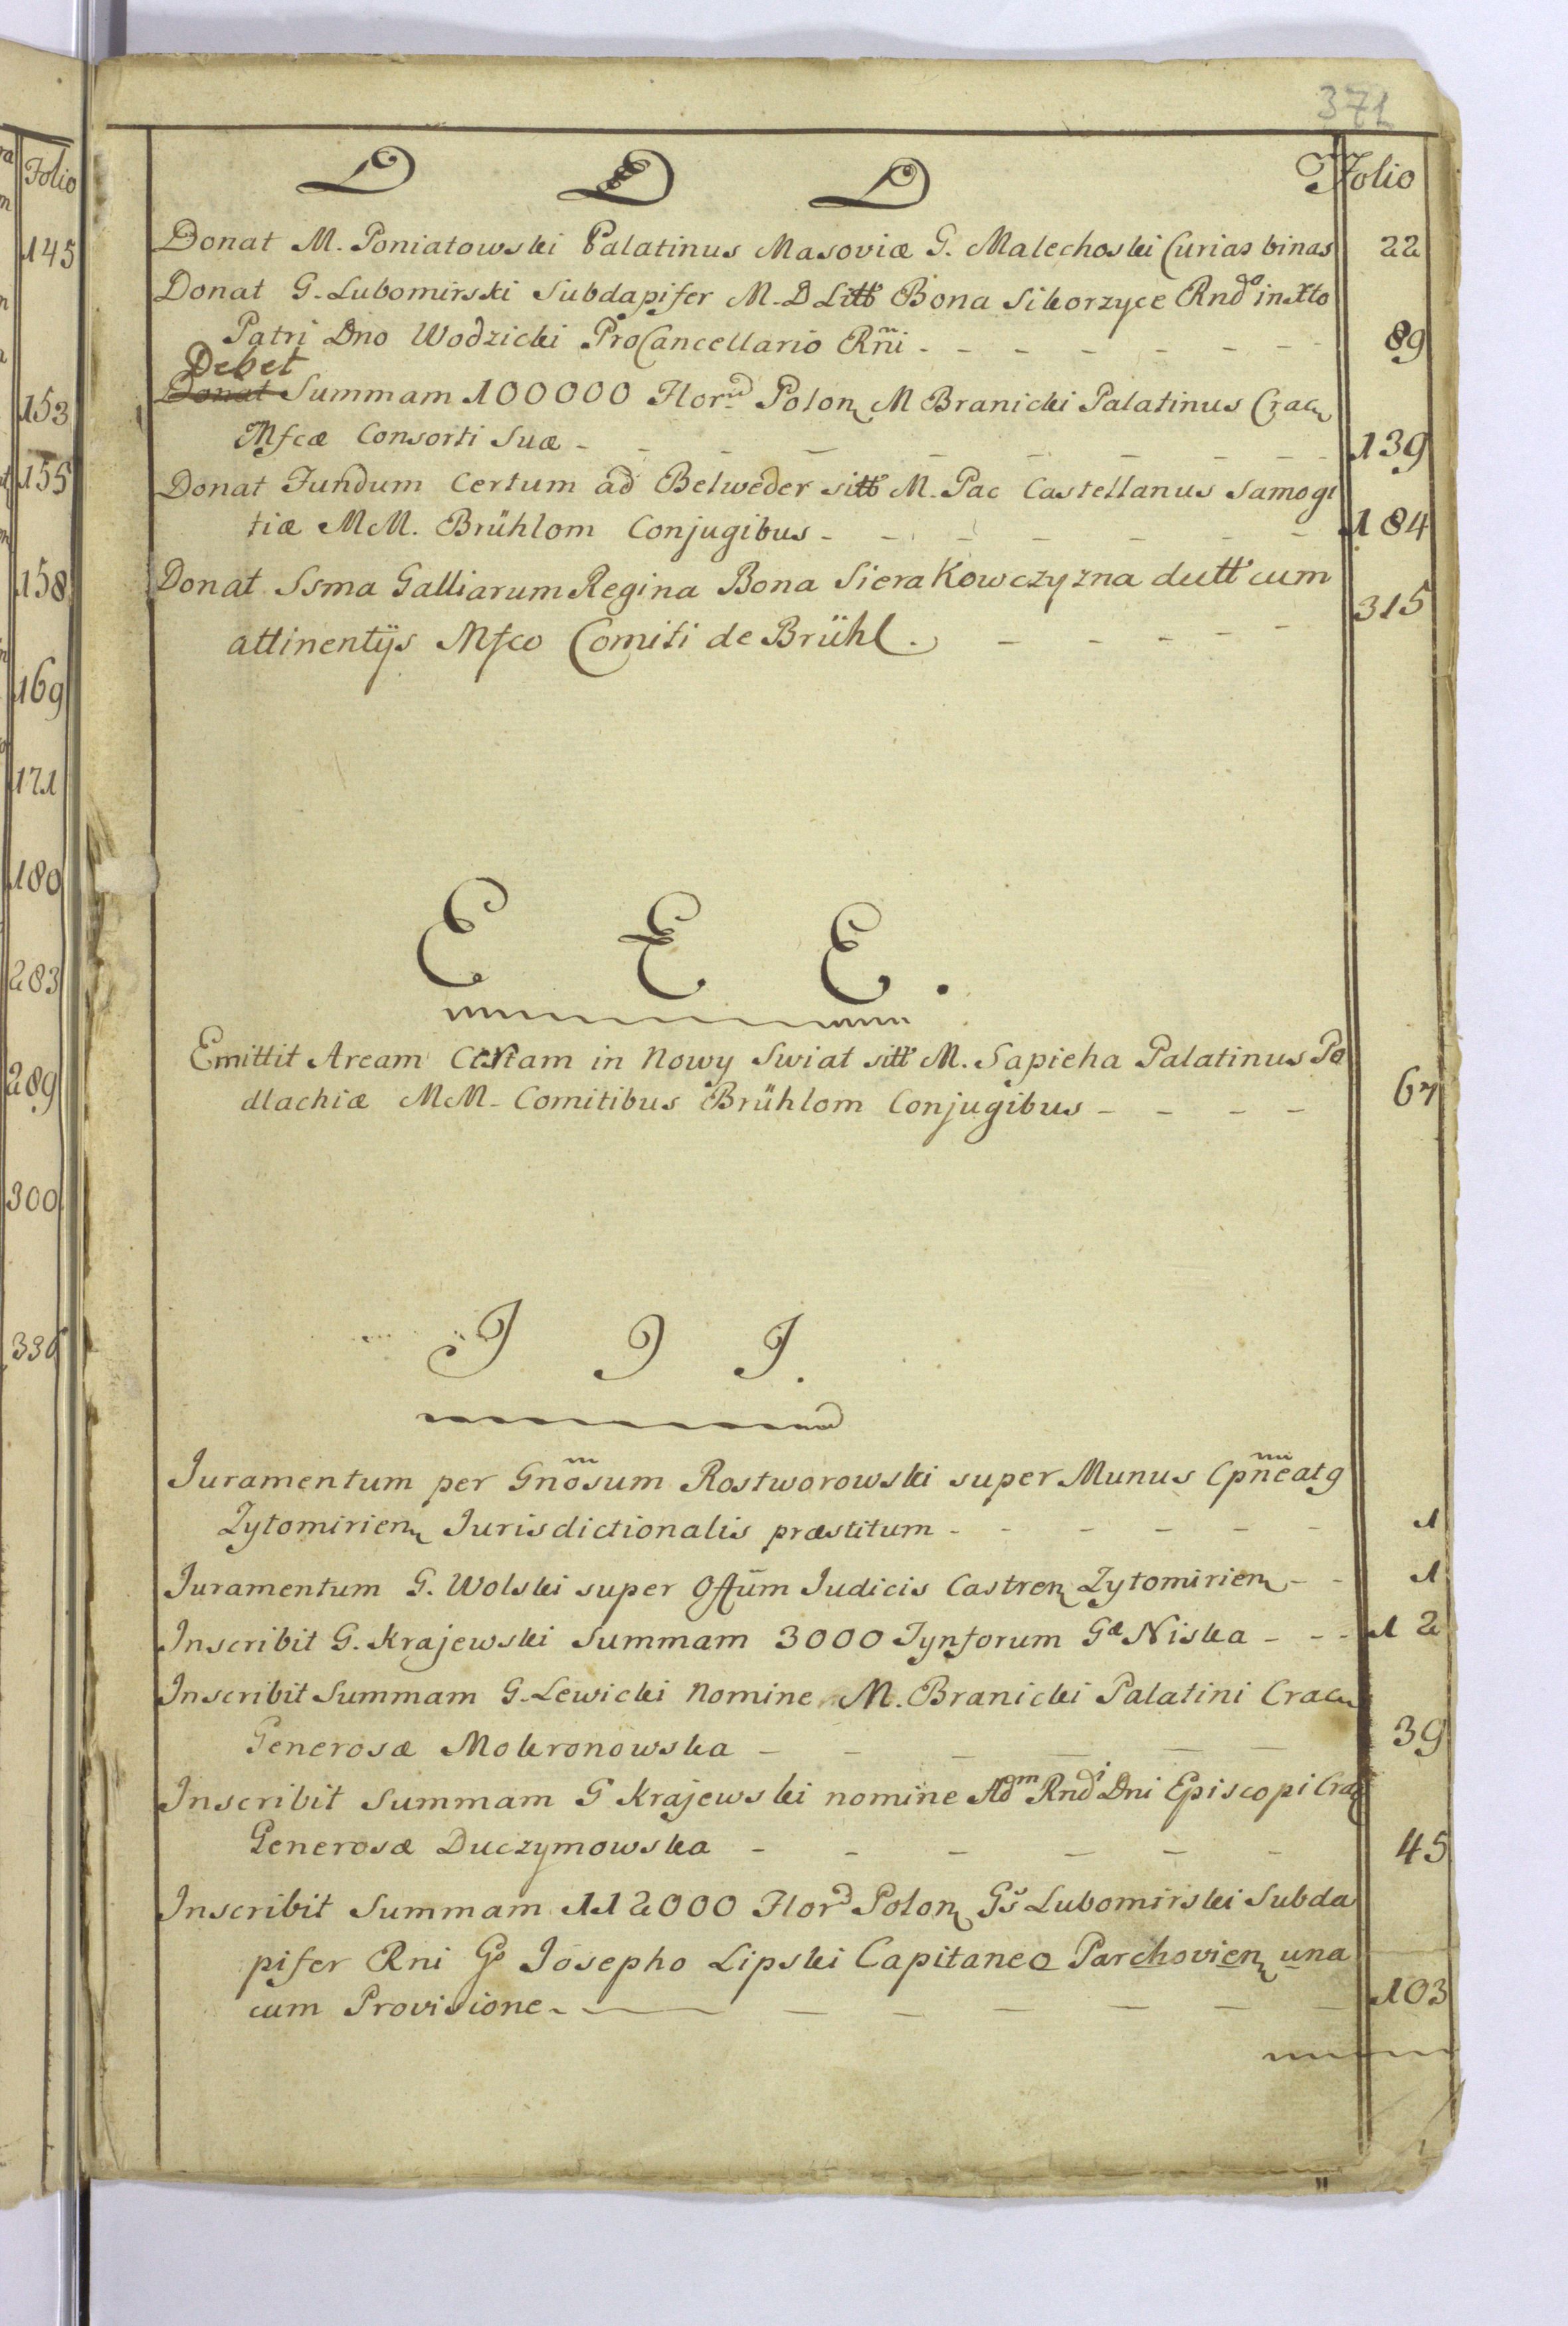 371
D D D Folio
Donat M. Poniatowski Palatinus Masoviæ G. Malechoski Curias binas 22
Donat G. Lubomirski Subdapifer M. D Litt Bona Sikorzyce Rndo in Xto
Patri Dno Wodzicki ProCancellario Rni - - - - - - - 89
Debet
Donat Summam 100000 Flor Polon M Branicki Palatinus Crac
Mfcæ Consorti Suæ - - - - - - - - 139
Donat Fundum Certum ad Belweder sitt M. Pac Castellanus Samogi
tiæ MM. Brühlom Conjugibus - - - - - - 184
Donat Ssma Galliarum Regina Bona Sierakowczyzna dutt cum
attinentijs Mfco Comiti de Brühl. - - - - - 315
E E E.
Emittit Aream Certam in Nowy Swiat sitt M. Sapieha Palatinus Po
dlachiæ MM. Comitibus Brühlom Conjugibus - - - - 67
J J J.
Juramentum per Gnosum Rostworowski super Munus Cpneatg
Zytomirien Jurisdictionalis præstitum - - - - - - 1
Juramentum G. Wolski super Offum Judicis Castren Zytomirien - - 1
Inscribit G. Krajewski Summam 3000 Tynforum Gæ Niska - - - 12
Inscribit Summam G. Lewicki Nomine M. Branicki Palatini Crac
Generosæ Mokronowska - - - - - - 39
Inscribit Summam G Krajewski nomine Adm Rndi Dni Episcopi Crac
Generosæ Duczymowska - - - - - - 45
Inscribit Summam 112000 Flor Polon Gs Lubomirski Subda
pifer Rni Go Josepho Lipski Capitaneo Parchovien una
cum Provisione - - - - - - - 103
Folio
145
153
155
158
169
171
180
283
289
300